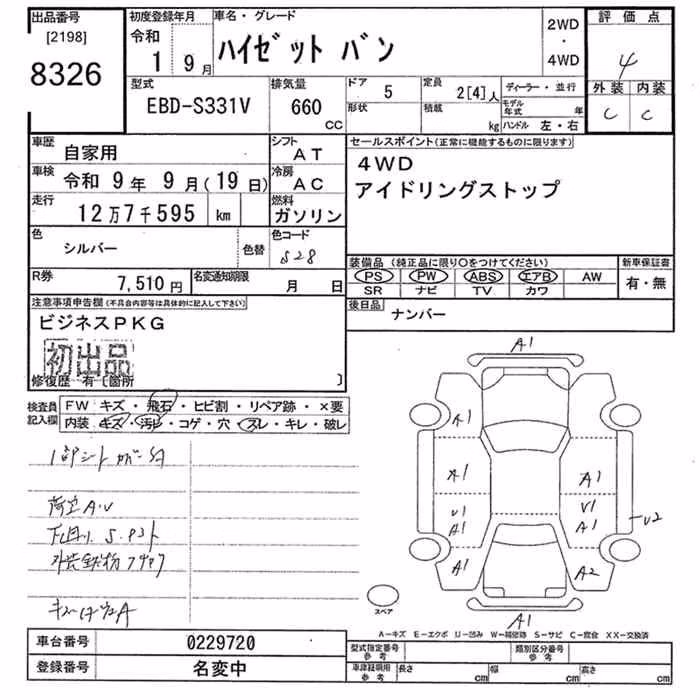 出品番号
[2198]
8326
初度登録年月
令和
1 9月
車名・グレード
ハイゼット バン
2WD
・
4WD
評価点
4
外装 内装
C C
型式
EBD-S331V
排気量
660
CC
ドア 5
形状
定員 2[4]人
積載 kg
ディーラー・並行
モデル年式 年
ハンドル 左・右
車歴
自家用
シフト
AT
車検 令和 9年 9月(19日)
冷房
AC
走行
12万7千595 km
燃料
ガソリン
色
シルバー
色替
色コード
S28
R券
7,510円
名変通知期限
月 日
セールスポイント(正常に機能するものに限ります)
4WD
アイドリングストップ
装備品(純正品に限り○をつけてください)
PS PW ABS エアB AW
SR ナビ TV カワ
新車保証書
有・無
後日品
ナンバー
注意事項申告欄(不具合内容等は具体的に記入して下さい)
ビジネスPKG
初出品
修復歴 有〔箇所 〕
検査員記入欄
FW キズ・飛石・ヒビ割・リペア跡・×要
内装 キズ・汚レ・コゲ・穴・スレ・キレ・破レ
A1
A1
A1
A1
V1
A1
V1
A1
V2
A1
A2
A1
スペア
A−キズ E−エクボ U−凹み W−補修跡 S−サビ C−腐食 XX−交換済
車台番号
0229720
登録番号
名変中
型式指定番号
参考
類別区分番号
参考
車庫証明用
参考
長さ cm
幅 cm
高さ cm